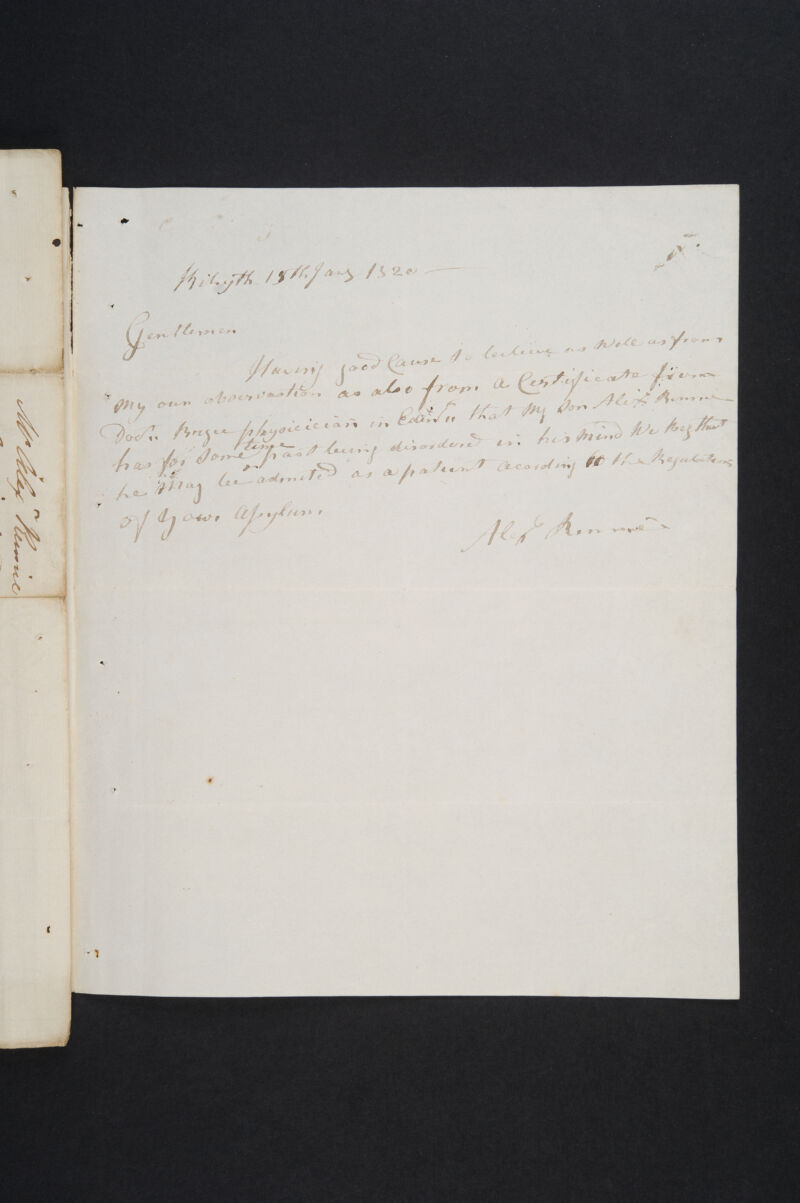 Kilsyth 18th Jany 1820
Gentlemen
Having good Cause to believe as well as from
my own observation as also from a Certificate from
Doctr physicician in Edinr that my Son Alexr Rennie
has for some time past being disordered in his Mind We Beg that
he may be admited as a patient acording to the Regulations
of your Asylum
Alexr Rennie
Mr Alexr Rennie